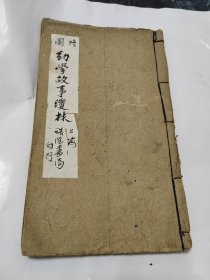 繪圖
幼學故事瓊林
上海
書局
印行